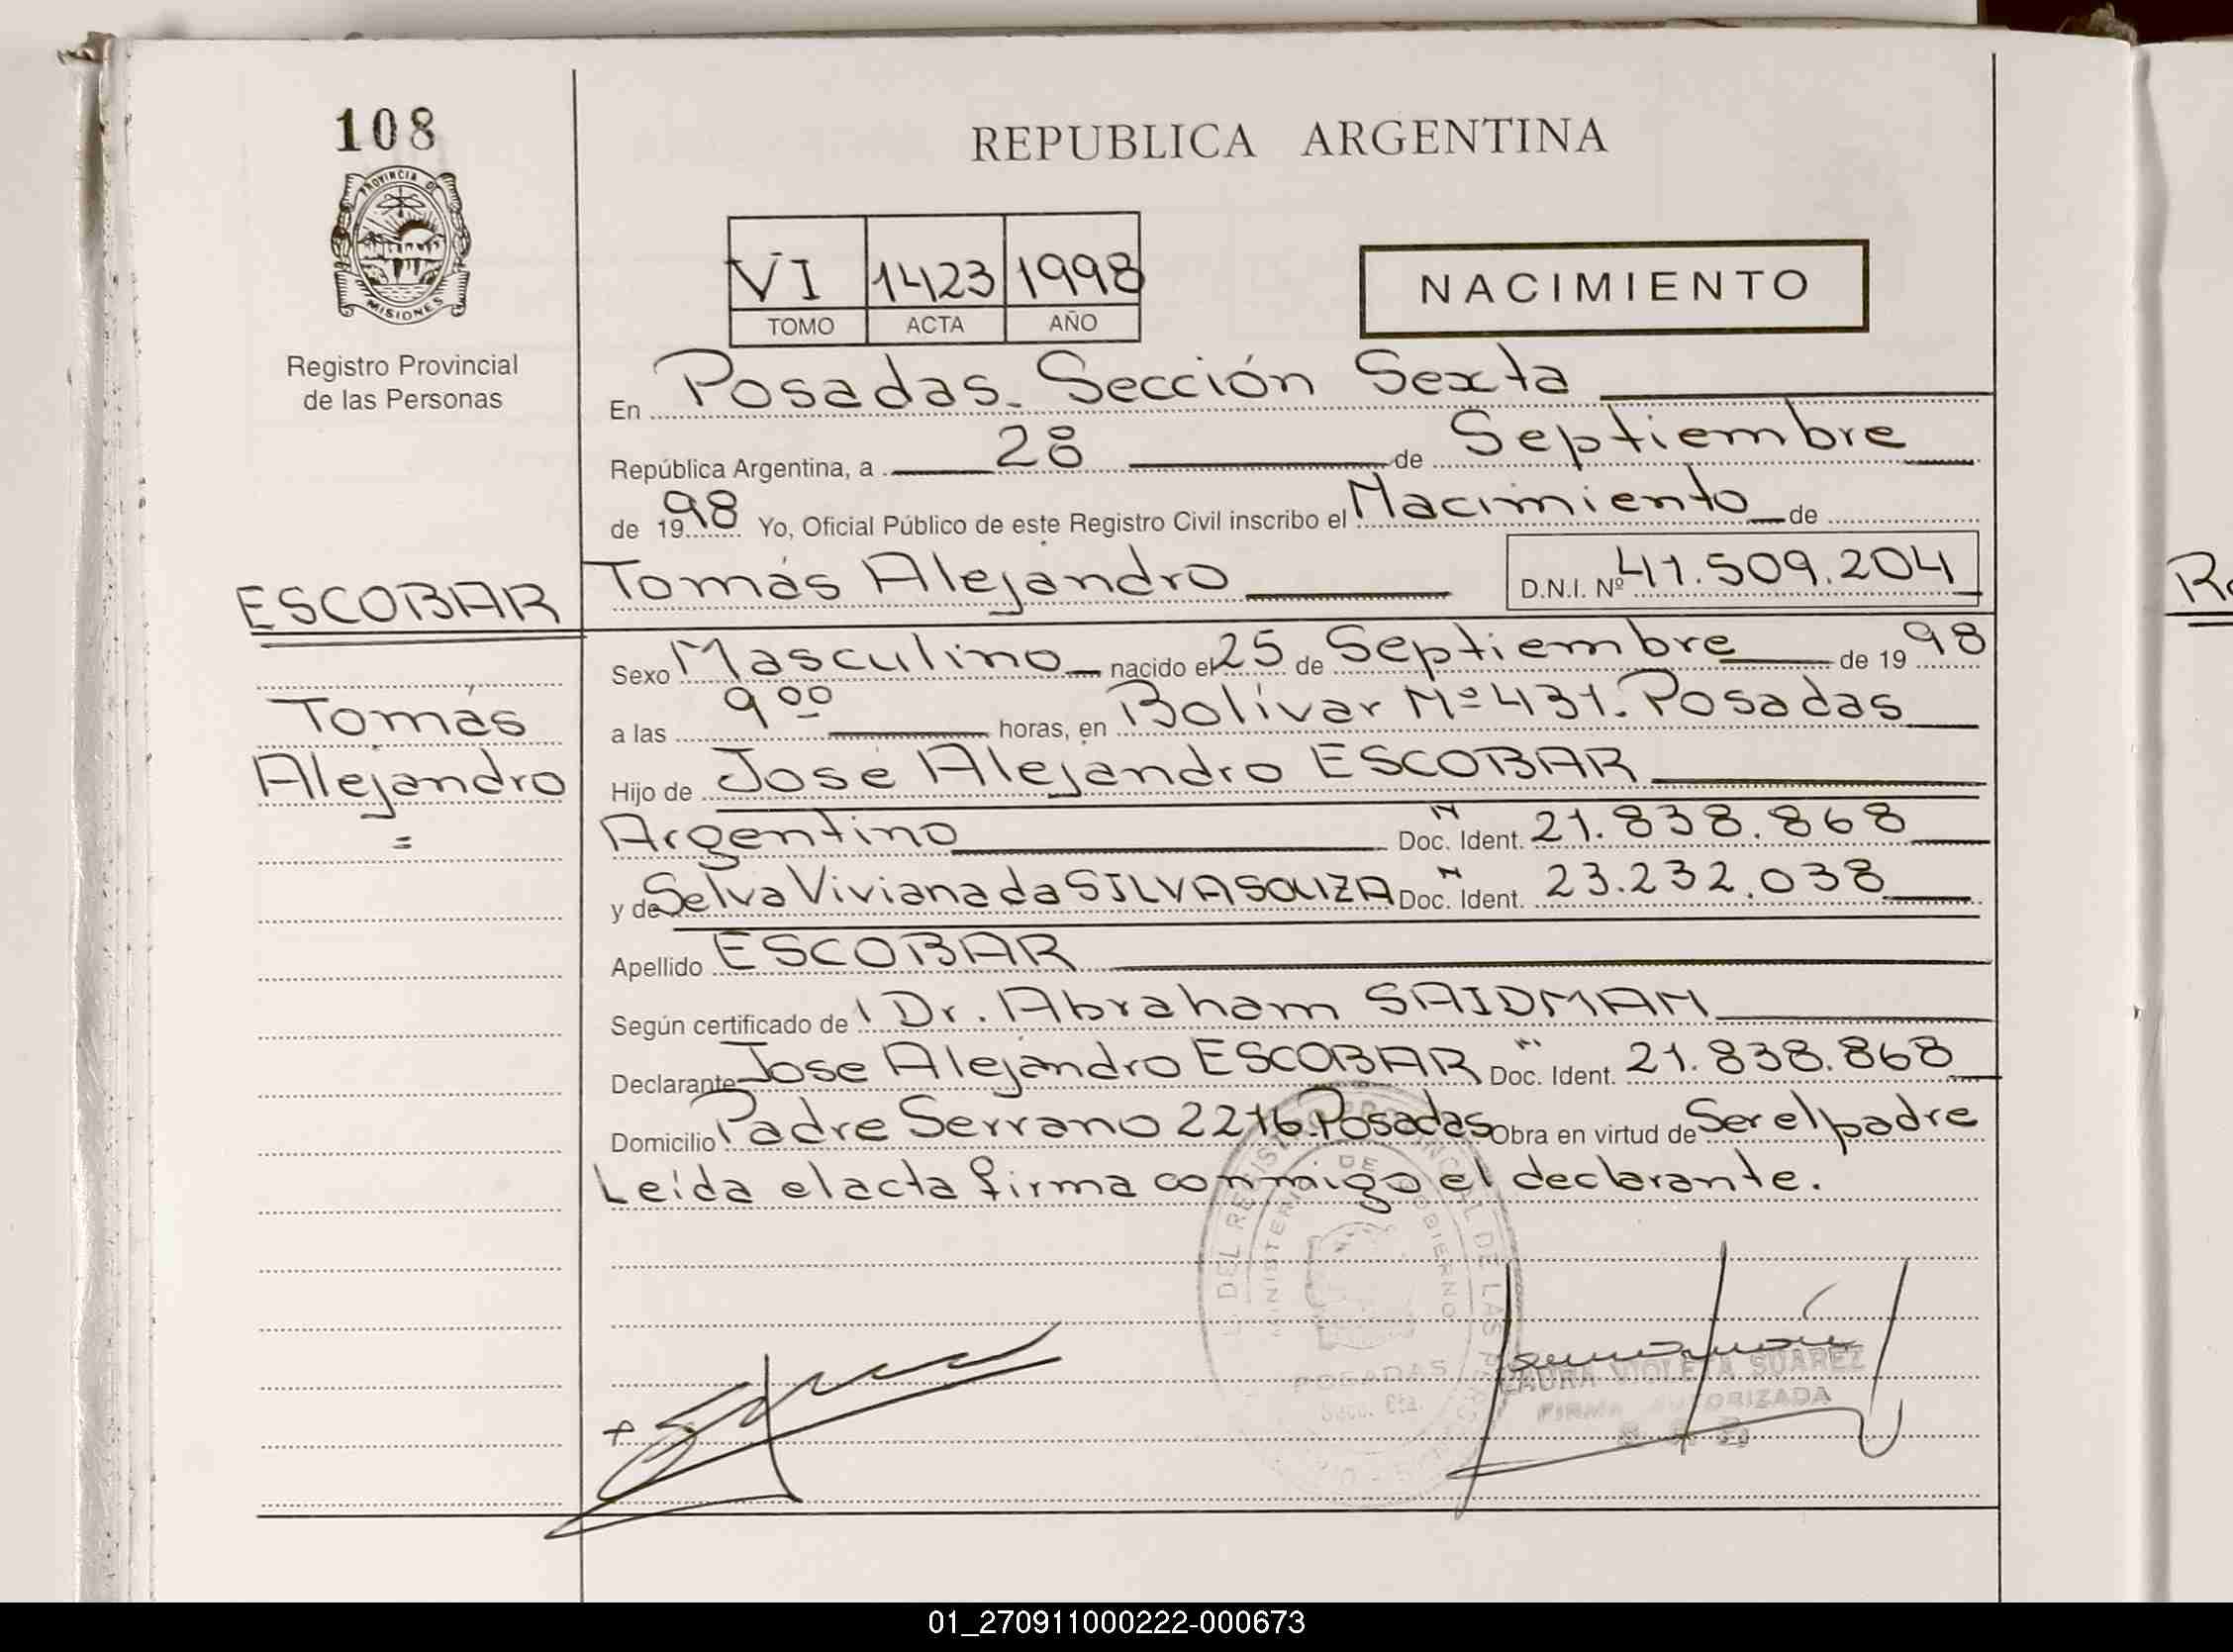 108
PROVINCIA D
MISIONES
Registro Provincial
de las Personas
ESCOBAR
Tomás
Alejandro
=
REPUBLICA ARGENTINA
VI 1423 1998
TOMO ACTA AÑO
NACIMIENTO
En Posadas. Sección Sexta
República Argentina, a 28 de Septiembre
de 1998 Yo, Oficial Público de este Registro Civil inscribo el Nacimiento de
Tomás Alejandro D.N.I. Nº 41.509.204
Sexo Masculino nacido el 25 de Septiembre de 1998
a las 9 00 horas, en Bolívar Nº 431. Posadas
Hijo de José Alejandro ESCOBAR
Argentino Doc. Ident. N 21.838.868
y de Selva Viviana da SILVA SOUZA Doc. Ident. N 23.232.038
Apellido ESCOBAR
Según certificado de l Dr. Abraham SAIDMAN
Declarante Jose Alejandro ESCOBAR Doc. Ident. N 21.838.868
Domicilio Padre Serrano 2216. Posadas Obra en virtud de Ser el padre
Leída el acta firma conmigo el declarante.
DEL REGISTRO PROVINCIAL DE LAS
MINISTERIO DE GOBIERNO
POSADAS
Secc. 6ta.
LAURA VIOLETA SUAREZ
FIRMA AUTORIZADA
Re
01_270911000222-000673